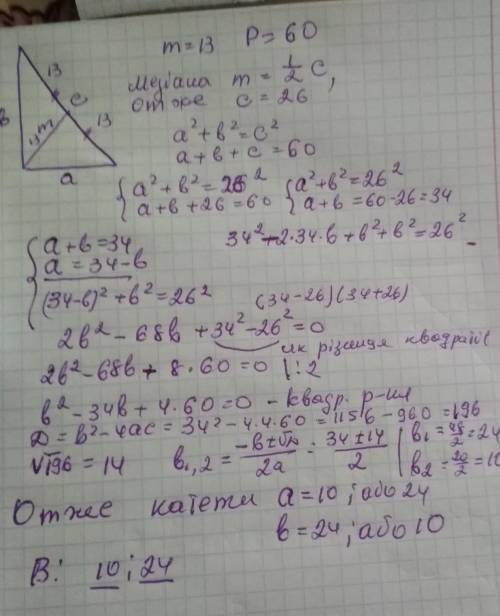 m=13 P=60
13
c
13
в
m
a
Медіана m = 1/2 c,
отже c = 26
a²+в²=c²
a+в+c=60
{a²+в²=26² {a²+в²=26²
a+в+26=60 a+в=60-26=34
{a+в=34 34²-2·34·в+в²+в²=26²
a=34-в
(34-в)²+в²=26² (34-26)(34+26)
2в²-68в+34²-26²=0
як різниця квадратів
2в²-68в+8·60=0 |:2
в²-34в+4·60=0 - квадр. р-ня
D=в²-4ac=34²-4·4·60=1156-960=196
√196=14 в₁,₂=(-в±√D)/2a=(34±14)/2 |в₁=48/2=24
в₂=20/2=10
Отже катети a=10; або 24
в=24; або 10
В: 10; 24